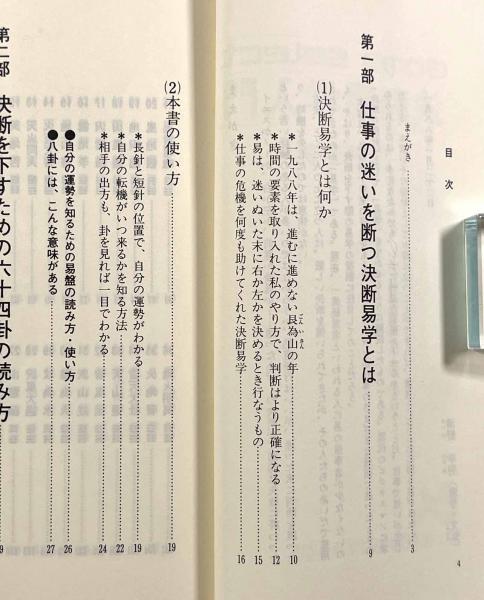 目次
まえがき 3
第一部 仕事の迷いを断つ決断易学とは 9
(1)決断易学とは何か
＊一九八八年は、進むに進めない艮為山の年 10
ごんいさん
＊時間の要素を取り入れた私のやり方で、判断はより正確になる 12
＊易は、迷いぬいた末に右か左かを決めるとき行なうもの 15
＊仕事の危機を何度も助けてくれた決断易学 16
4
(2)本書の使い方 19
＊長針と短針の位置で、自分の運勢がわかる 19
＊自分の転機がいつ来るかを知る方法 22
＊相手の出方も、卦を見れば一目でわかる 24
●自分の運勢を知るための易盤の読み方・使い方 26
●八卦には、こんな意味がある 27
第二部 決断を下すための六十四卦の読み方